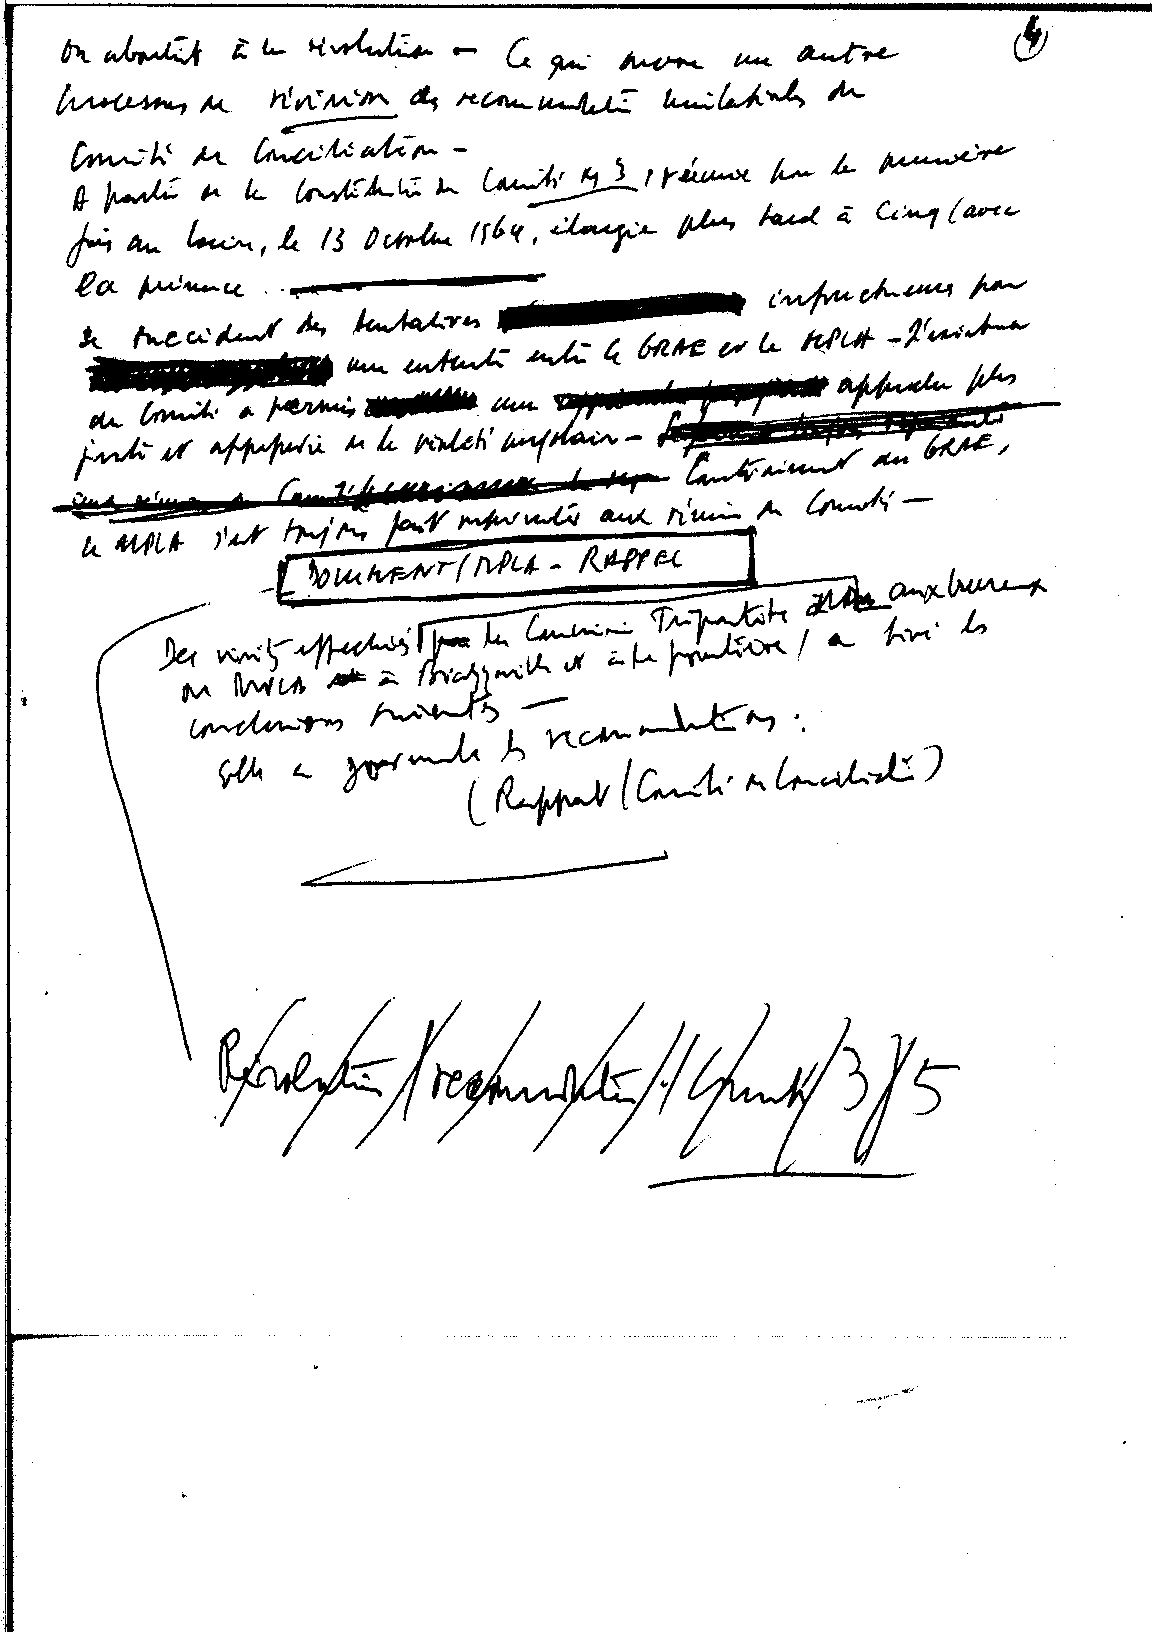 4
on aboutit à la résolution — Ce qui ouvre un autre
processus de révision des recommandations unilatérales du
Comité de Conciliation —
A partir de la constitution du Comité des 3, réunie pour la première
fois au Caire, le 13 Octobre 1964, élargie plus tard à Cinq (avec
la présence
Se succèdent des tentatives infructueuses pour
une entente entre le GRAE et le MPLA —
du Comité a permis une approche plus
juste et approfondie de la réalité angolaise — Contrairement au GRAE,
le MPLA s'est toujours fait représenter aux réunions du Comité —
DOCUMENT / MPLA - RAPPEL
Des visites effectuées par la Commission Tripartite aux bureaux
du MPLA à Brazzaville et à la frontière / a tiré les
conclusions suivantes —
Elle a formulé les recommandations :
(Rapport / Comité de Conciliation)
Résolution / recommandation / Comité / 3 / 5